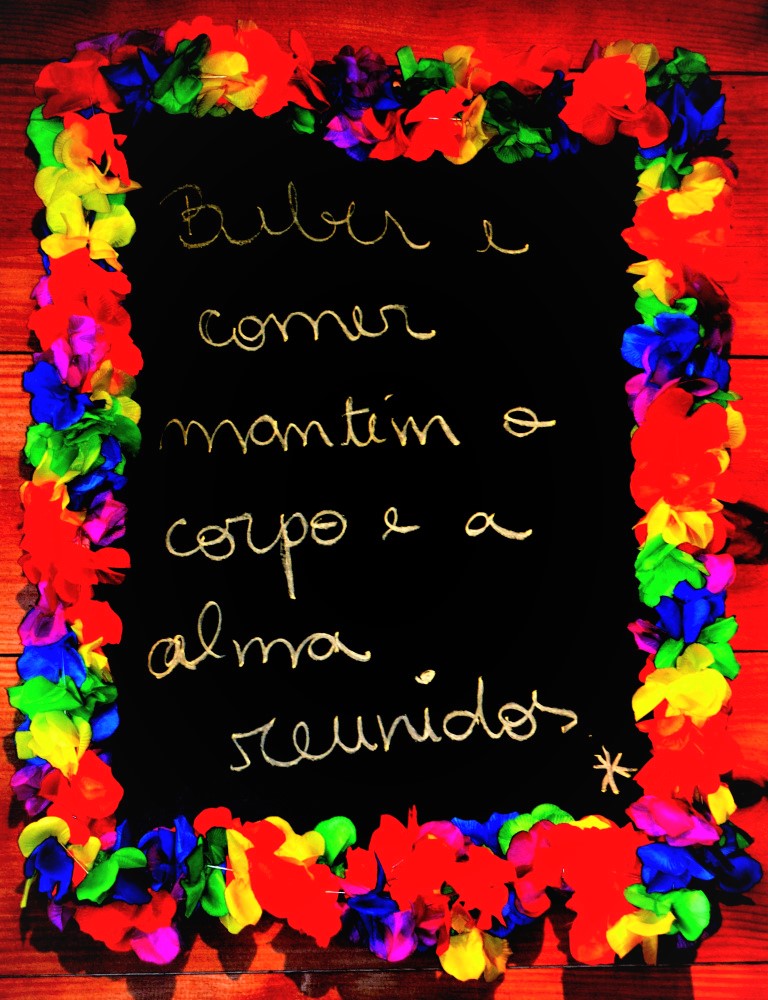 Buber e
comer
mantém o
corpo e a
alma
reunidos
*